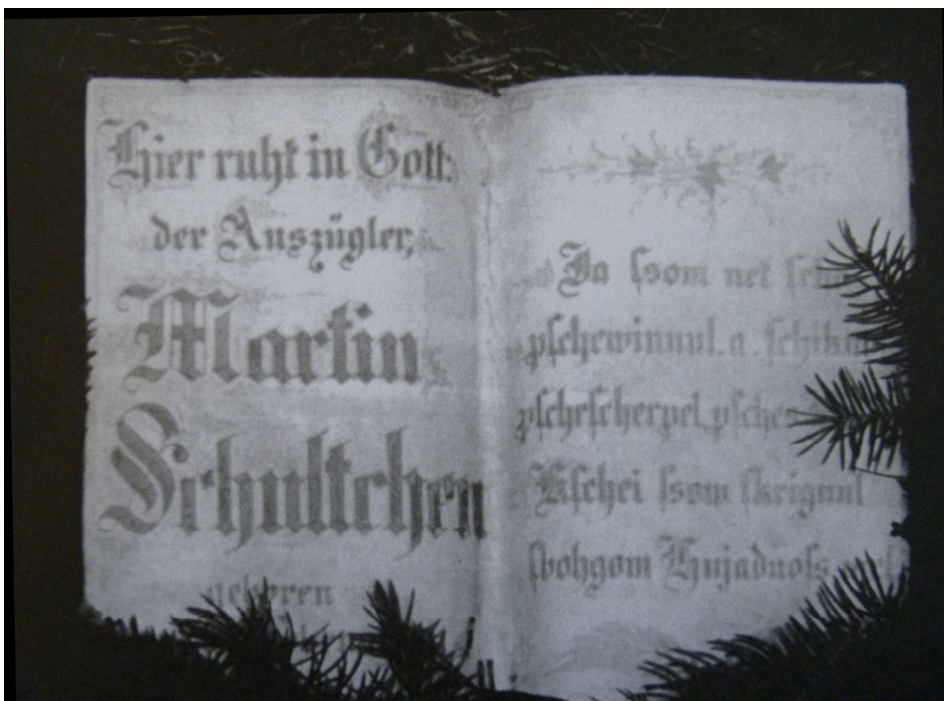 Hier ruht in Gott:
der Auszügler,
Martin
Schultchen
geboren
Ja ſsom net
pſchewinnul. a.
pſcheſcherpel,
Kſchei ſsom ſkrignul
ſbohgom